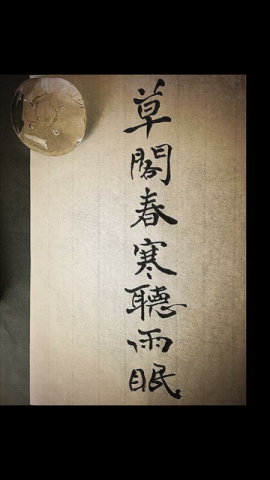 草閣春寒聽雨眠